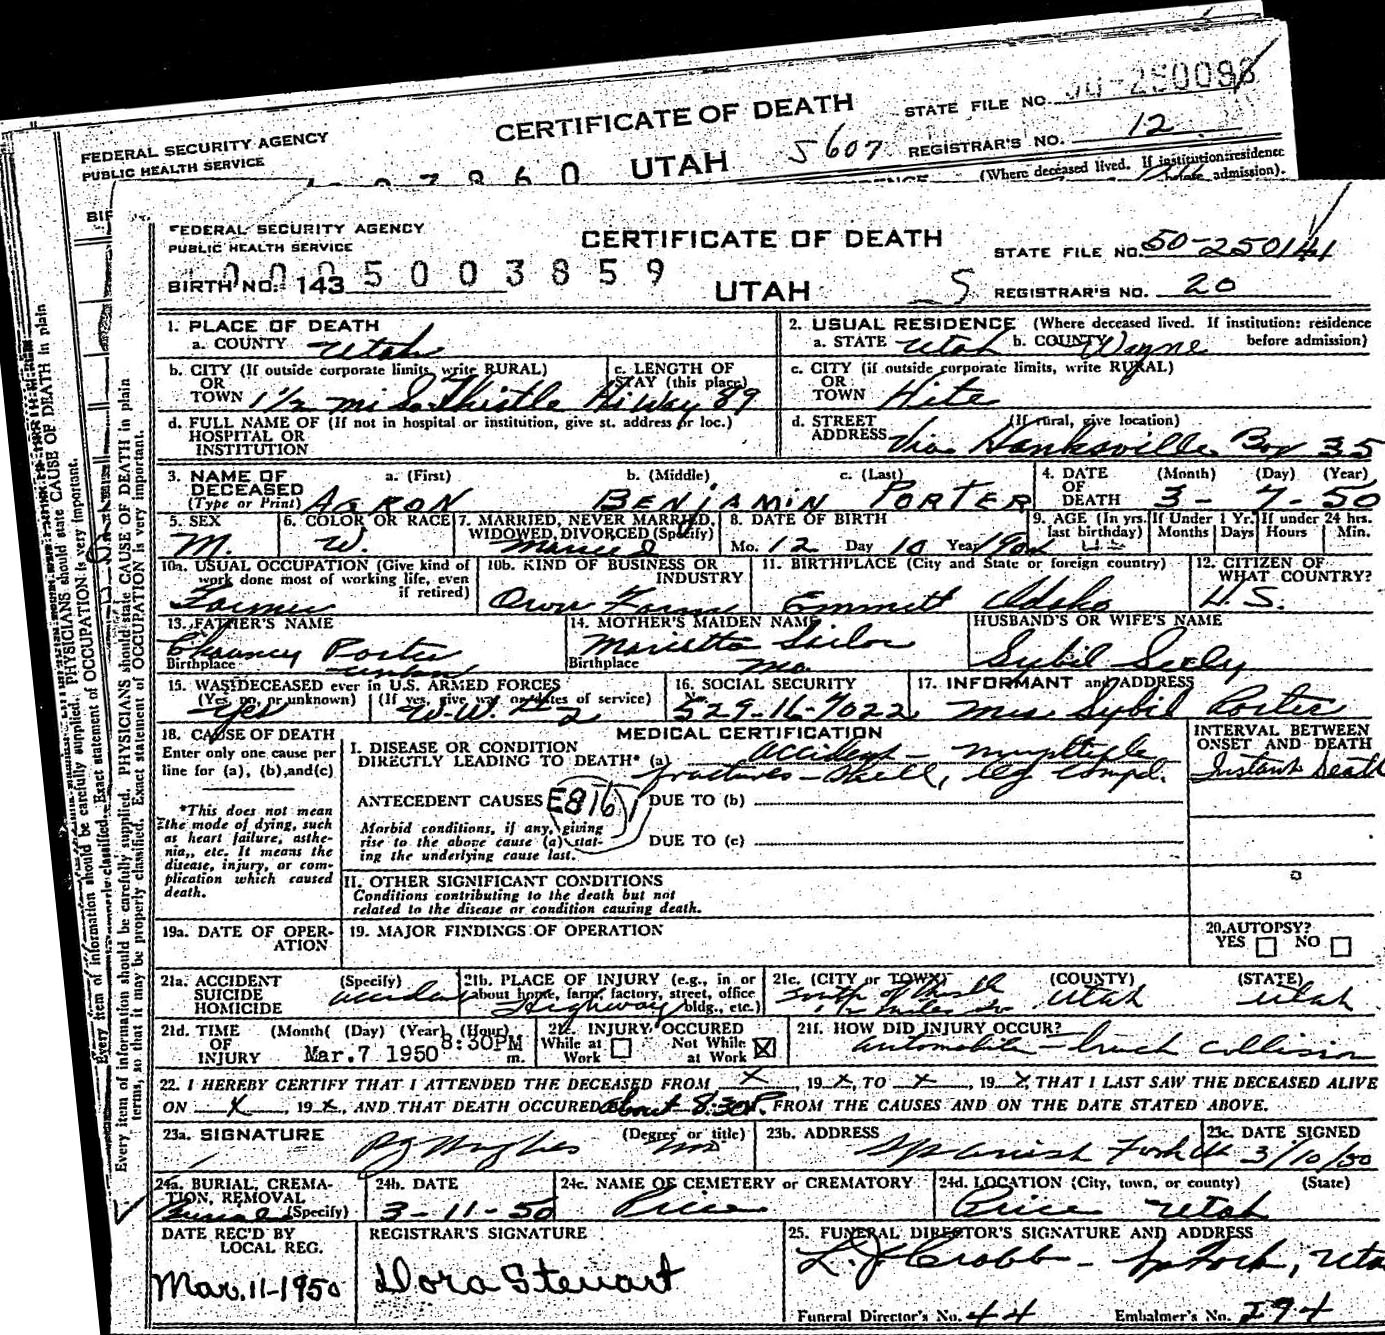 FEDERAL SECURITY AGENCY
PUBLIC HEALTH SERVICE
CERTIFICATE OF DEATH
UTAH
5607
STATE FILE NO.
REGISTRAR'S NO. 12
(Where deceased lived. If institution: residence
admission).
Every item of information should be carefully supplied. PHYSICIANS should state CAUSE OF DEATH in plain
Every item of information should be carefully supplied. PHYSICIANS should state CAUSE OF DEATH in plain
terms, so that it may be properly classified. Exact statement of OCCUPATION is very important.
FEDERAL SECURITY AGENCY
PUBLIC HEALTH SERVICE
CERTIFICATE OF DEATH
STATE FILE NO. 50-250141
BIRTH NO. 143 5003859
UTAH
S
REGISTRAR'S NO. 20
1. PLACE OF DEATH
a. COUNTY Utah
2. USUAL RESIDENCE (Where deceased lived. If institution: residence
before admission)
a. STATE Utah b. COUNTY Wayne
b. CITY (If outside corporate limits, write RURAL)
OR
TOWN 1 1/2 mi So. Thistle HiWay 89
c. LENGTH OF
STAY (this place)
c. CITY (if outside corporate limits, write RURAL)
OR
TOWN Hite
d. FULL NAME OF (If not in hospital or institution, give st. address or loc.)
HOSPITAL OR
INSTITUTION
d. STREET (If rural, give location)
ADDRESS Via Hanksville Box 35
3. NAME OF
DECEASED
(Type or Print)
a. (First) b. (Middle) c. (Last)
AARON BENJAMIN PORTER
4. DATE
OF
DEATH
(Month) (Day) (Year)
3-7-50
5. SEX
M.
6. COLOR OR RACE
W.
7. MARRIED, NEVER MARRIED,
WIDOWED, DIVORCED (Specify)
Married
8. DATE OF BIRTH
Mo. 12 Day 10 Year
9. AGE (In yrs.
last birthday)
If Under 1 Yr.
Months Days
If under 24 hrs.
Hours Min.
10a. USUAL OCCUPATION (Give kind of
work done most of working life, even
if retired)
Farmer
10b. KIND OF BUSINESS OR
INDUSTRY
Own Farm
11. BIRTHPLACE (City and State or foreign country)
Emmett Idaho
12. CITIZEN OF
WHAT COUNTRY?
U.S.
13. FATHER'S NAME
Chauncy Porter
Birthplace
14. MOTHER'S MAIDEN NAME
Marietta Sailor
Birthplace Mo
HUSBAND'S OR WIFE'S NAME
Sybil Seely
15. WAS DECEASED ever in U.S. ARMED FORCES
(Yes, no, or unknown) (If yes, give war or dates of service)
Yes W.W. 2
16. SOCIAL SECURITY
No.
529-16-7022
17. INFORMANT and ADDRESS
Mrs Sybil Porter
18. CAUSE OF DEATH
Enter only one cause per
line for (a), (b), and (c)
*This does not mean
the mode of dying, such
as heart failure, asthe-
nia, etc. It means the
disease, injury, or com-
plication which caused
death.
MEDICAL CERTIFICATION
I. DISEASE OR CONDITION
DIRECTLY LEADING TO DEATH* (a) accident — multiple
fractures — skull, leg compd.
ANTECEDENT CAUSES E816
DUE TO (b)
Morbid conditions, if any, giving
rise to the above cause (a) stat-
ing the underlying cause last.
DUE TO (c)
II. OTHER SIGNIFICANT CONDITIONS
Conditions contributing to the death but not
related to the disease or condition causing death.
INTERVAL BETWEEN
ONSET AND DEATH
Instant Death
19a. DATE OF OPER-
ATION
19. MAJOR FINDINGS OF OPERATION
20. AUTOPSY?
YES NO
21a. ACCIDENT (Specify)
SUICIDE
HOMICIDE
accident
21b. PLACE OF INJURY (e.g., in or
about home, farm, factory, street, office
bldg., etc.)
Highway
21c. (CITY or TOWN) (COUNTY) (STATE)
South of Thistle Utah Utah
21d. TIME (Month) (Day) (Year) (Hour)
OF
INJURY Mar. 7 1950 8:30PM m.
21e. INJURY OCCURED
While at Work
Not While at Work X
21f. HOW DID INJURY OCCUR?
automobile — truck collision
22. I HEREBY CERTIFY THAT I ATTENDED THE DECEASED FROM X, 19 X, TO X, 19 X, THAT I LAST SAW THE DECEASED ALIVE
ON X, 19 X, AND THAT DEATH OCCURED about 8:30P. FROM THE CAUSES AND ON THE DATE STATED ABOVE.
23a. SIGNATURE (Degree or title)
Hughes MD
23b. ADDRESS
Spanish Fork Ut
23c. DATE SIGNED
3/10/50
24a. BURIAL, CREMA-
TION, REMOVAL
(Specify)
Burial
24b. DATE
3-11-50
24c. NAME OF CEMETERY or CREMATORY
Price
24d. LOCATION (City, town, or county) (State)
Price Utah
DATE REC'D BY
LOCAL REG.
Mar. 11-1950
REGISTRAR'S SIGNATURE
Dora Stewart
25. FUNERAL DIRECTOR'S SIGNATURE AND ADDRESS
Sp Fork, Utah
Funeral Director's No. 44 Embalmer's No. 294